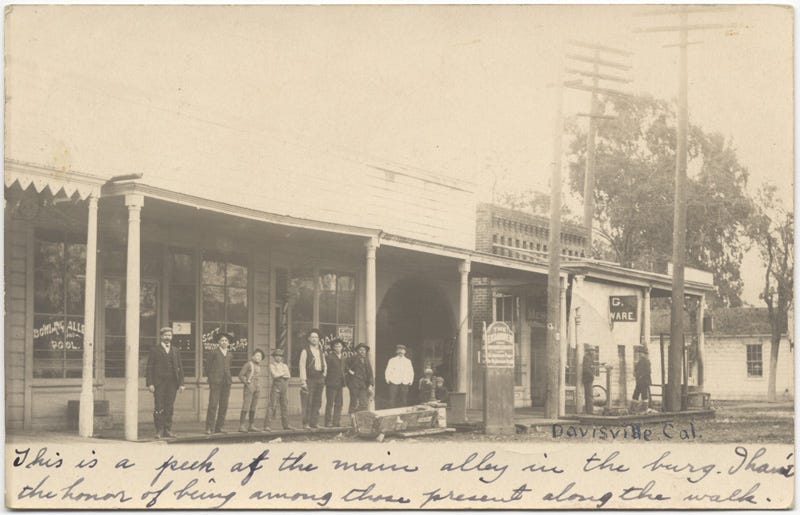 BOWLING ALLEY
AND
POOL.
SOFT
DRINKS
G.
WARE.
THE
Davisville Cal.
This is a peek at the main alley in the burg. I haven't
the honor of being among those present along the walk.